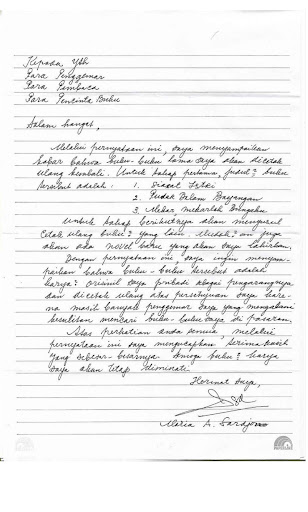 Kepada Yth
Para Penggemar
Para Pembaca
Para Pencinta Buku
Salam hangat,
Melalui pernyataan ini, saya menyampaikan
kabar bahwa buku-buku lama saya akan dicetak
ulang kembali. Untuk tahap pertama, judul² buku
tersebut adalah : 1. Siasat Istri
2. Indah Dalam Bayangan
3. Mekar Mekarlah Bungaku
Untuk tahap berikutnya akan menyusul
cetak ulang buku² yang lain. Mudah²an juga
akan ada novel baru yang akan saya lahirkan.
Dengan pernyataan ini, saya ingin menyam-
paikan bahwa buku-buku tersebut adalah
karya² orisinil saya pribadi sebagai pengarangnya
dan dicetak ulang atas persetujuan saya kare-
na masih banyak penggemar saya yang mengalami
kesulitan mencari buku-buku saya di pasaran.
Atas perhatian anda semua melalui
pernyataan ini saya mengucapkan, terima kasih
yang sebesar-besarnya. Semoga buku² karya
saya akan tetap diminati.
Hormat saya,
Maria A. Sardjono